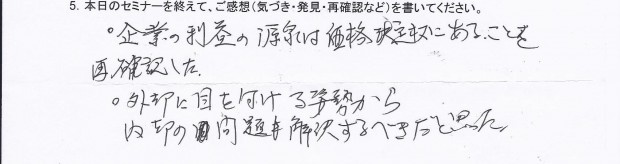 5. 本日のセミナーを終えて、ご感想（気づき・発見・再確認など）を書いてください。
。企業の利益の源泉は価格決定权にあることを
再確認した.
。外部に目を付ける姿勢から
内部の問題を解決するべきだと思った。